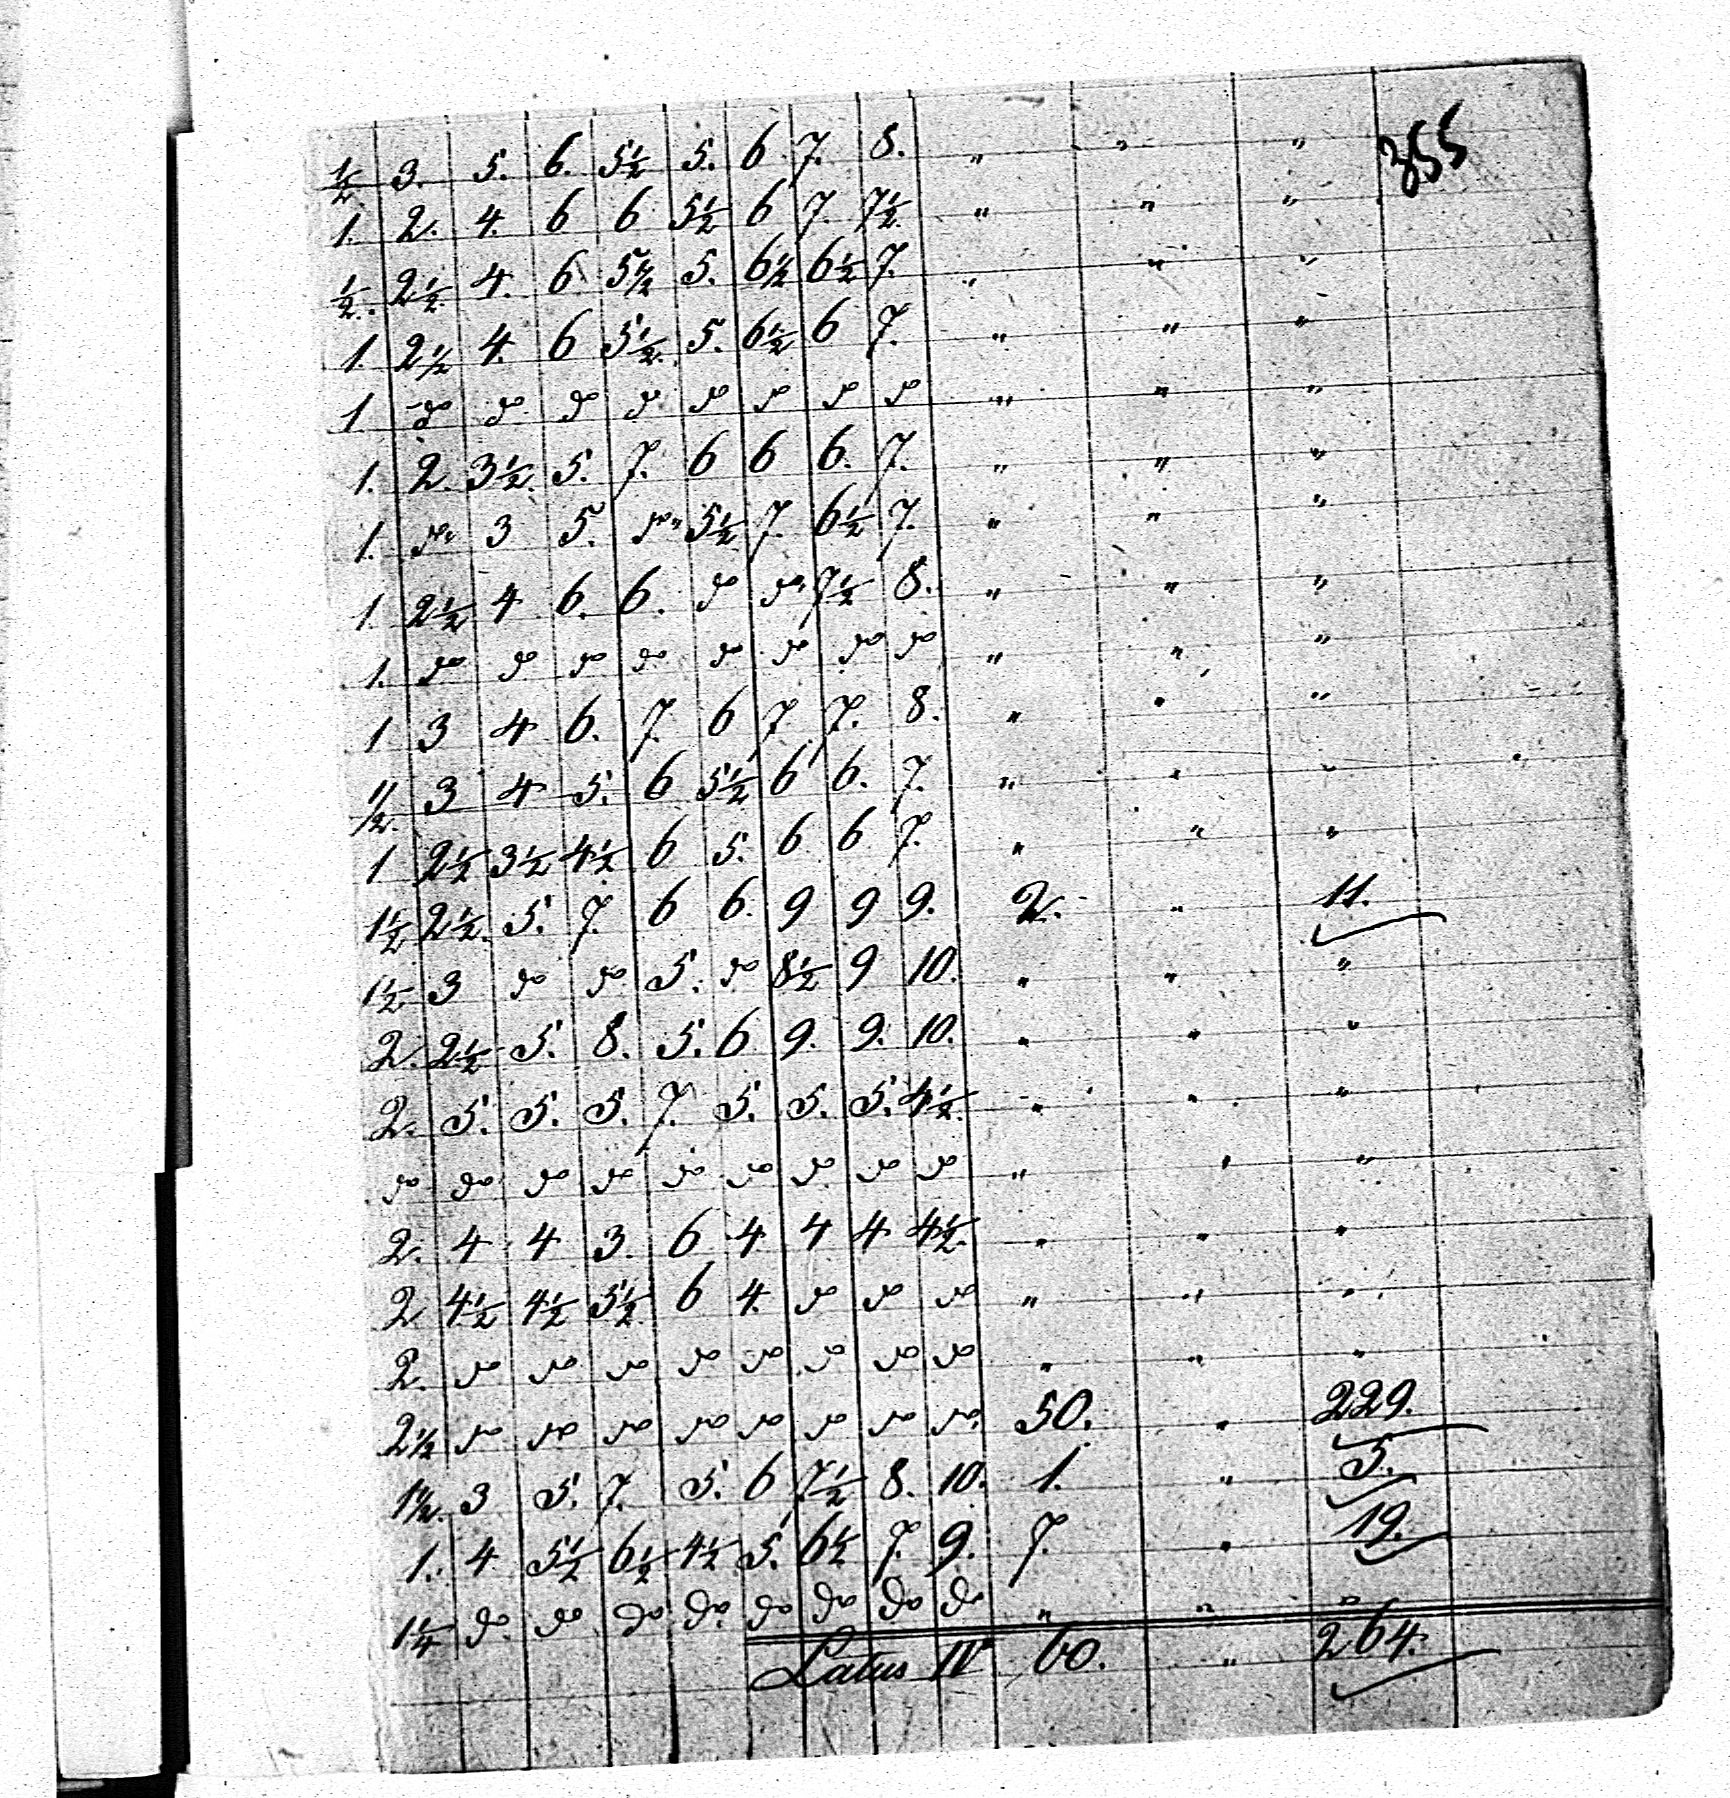 355
½ 3. 5. 6. 5½ 5. 6 7. 8. " " "
1. 2. 4. 6 6 5½ 6 7. 7½. " " "
½. 2½ 4. 6 5½ 5. 6½ 6½ 7. " " "
1. 2½ 4. 6 5½. 5. 6½ 6 7. " " "
1 do do do do do do do do " " "
1. 2. 3½. 5. 7. 6 6 6. 7. " " "
1. do 3 5. do 5½ 7. 6½ 7. " " "
1. 2½ 4 6. 6. do do 7½ 8. " " "
1. do do do do do do do do " " "
1 3 4 6. 7. 6 7 7. 8. " " "
½. 3 4 5. 6 5½ 6 6. 7. " " "
1 2½ 3½ 4½ 6 5. 6 6 7. " " "
1½ 2½. 5. 7. 6 6. 9 9 9. 2. " 11.
1½ 3 do do 5. do 8½ 9 10. " " "
2. 2½ 5. 8. 5. 6 9. 9. 10. " " "
2. 5. 5. 5. 7. 5. 5. 5. 4½. " " "
do do do do do do do do do " " "
2. 4 4 3. 6 4 4 4 4½. " " "
2 4½ 4½ 5½ 6 4. do do do " " "
2. do do do do do do do do " " "
2½ do do do do do do do do. 50. " 229.
1½. 3 5. 7. 5. 6 7½ 8. 10. 1. " 5.
1. 4 5½ 6½ 4½ 5. 6½ 7. 9. 7. " 19.
1¼ do. do do do. do do do do " " "
Latus IV 60. " 264.